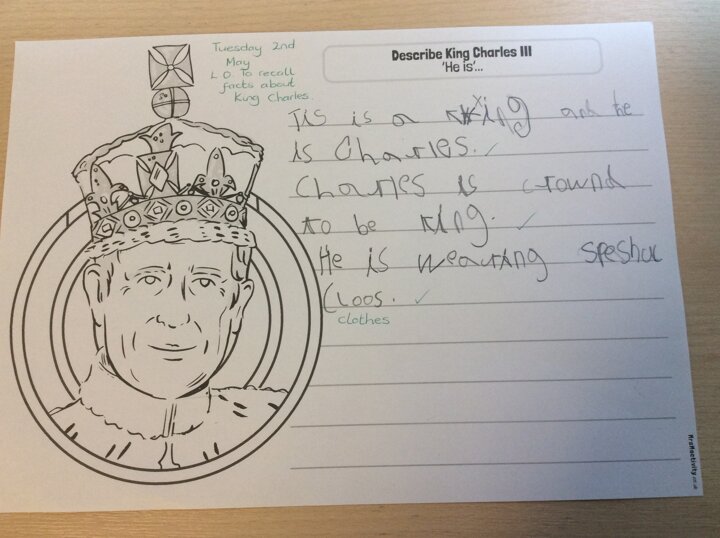 Tuesday 2nd
May
L.O. To recall
facts about
King Charles.
Describe King Charles III
'He is'...
Tis is a king and he
is Charles.
Charles is crownd
to be king.
He is wearing speshul
cloos.
clothes